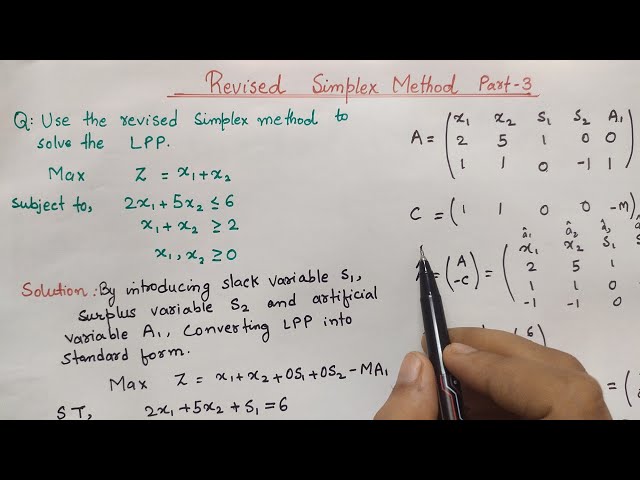 Revised Simplex Method Part-3
Q: Use the revised simplex method to
solve the LPP.
Max Z = x₁+x₂
subject to, 2x₁+5x₂ ≤ 6
x₁+x₂ ≥ 2
x₁, x₂ ≥ 0
Solution: By introducing slack variable S₁,
surplus variable S₂ and artificial
variable A₁, Converting LPP into
standard form.
Max Z = x₁+x₂+0S₁+0S₂-MA₁
ST, 2x₁+5x₂+S₁ = 6
x₁ x₂ S₁ S₂ A₁
A = 2 5 1 0 0
1 1 0 -1 1
C = (1 1 0 0 -M)
â₁ â₂
x₁ x₂ S₁
= (A -C) = 2 5 1
1 1 0
-1 -1 0
6